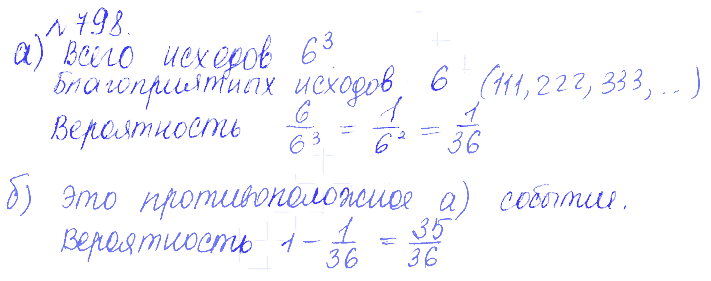 № 798.
а) Всего исходов 6³
Благоприятных исходов 6 (111, 222, 333, ...)
Вероятность 6/6³ = 1/6² = 1/36
б) это противоположное а) событие.
Вероятность 1 - 1/36 = 35/36